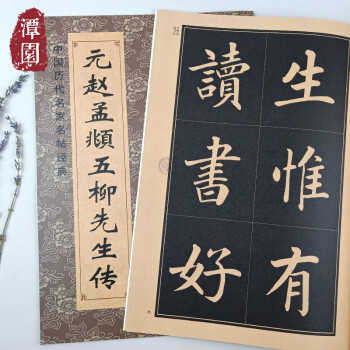 潭園
中国历代名家名帖经典
元赵孟頫五柳先生传
生惟有
讀書好